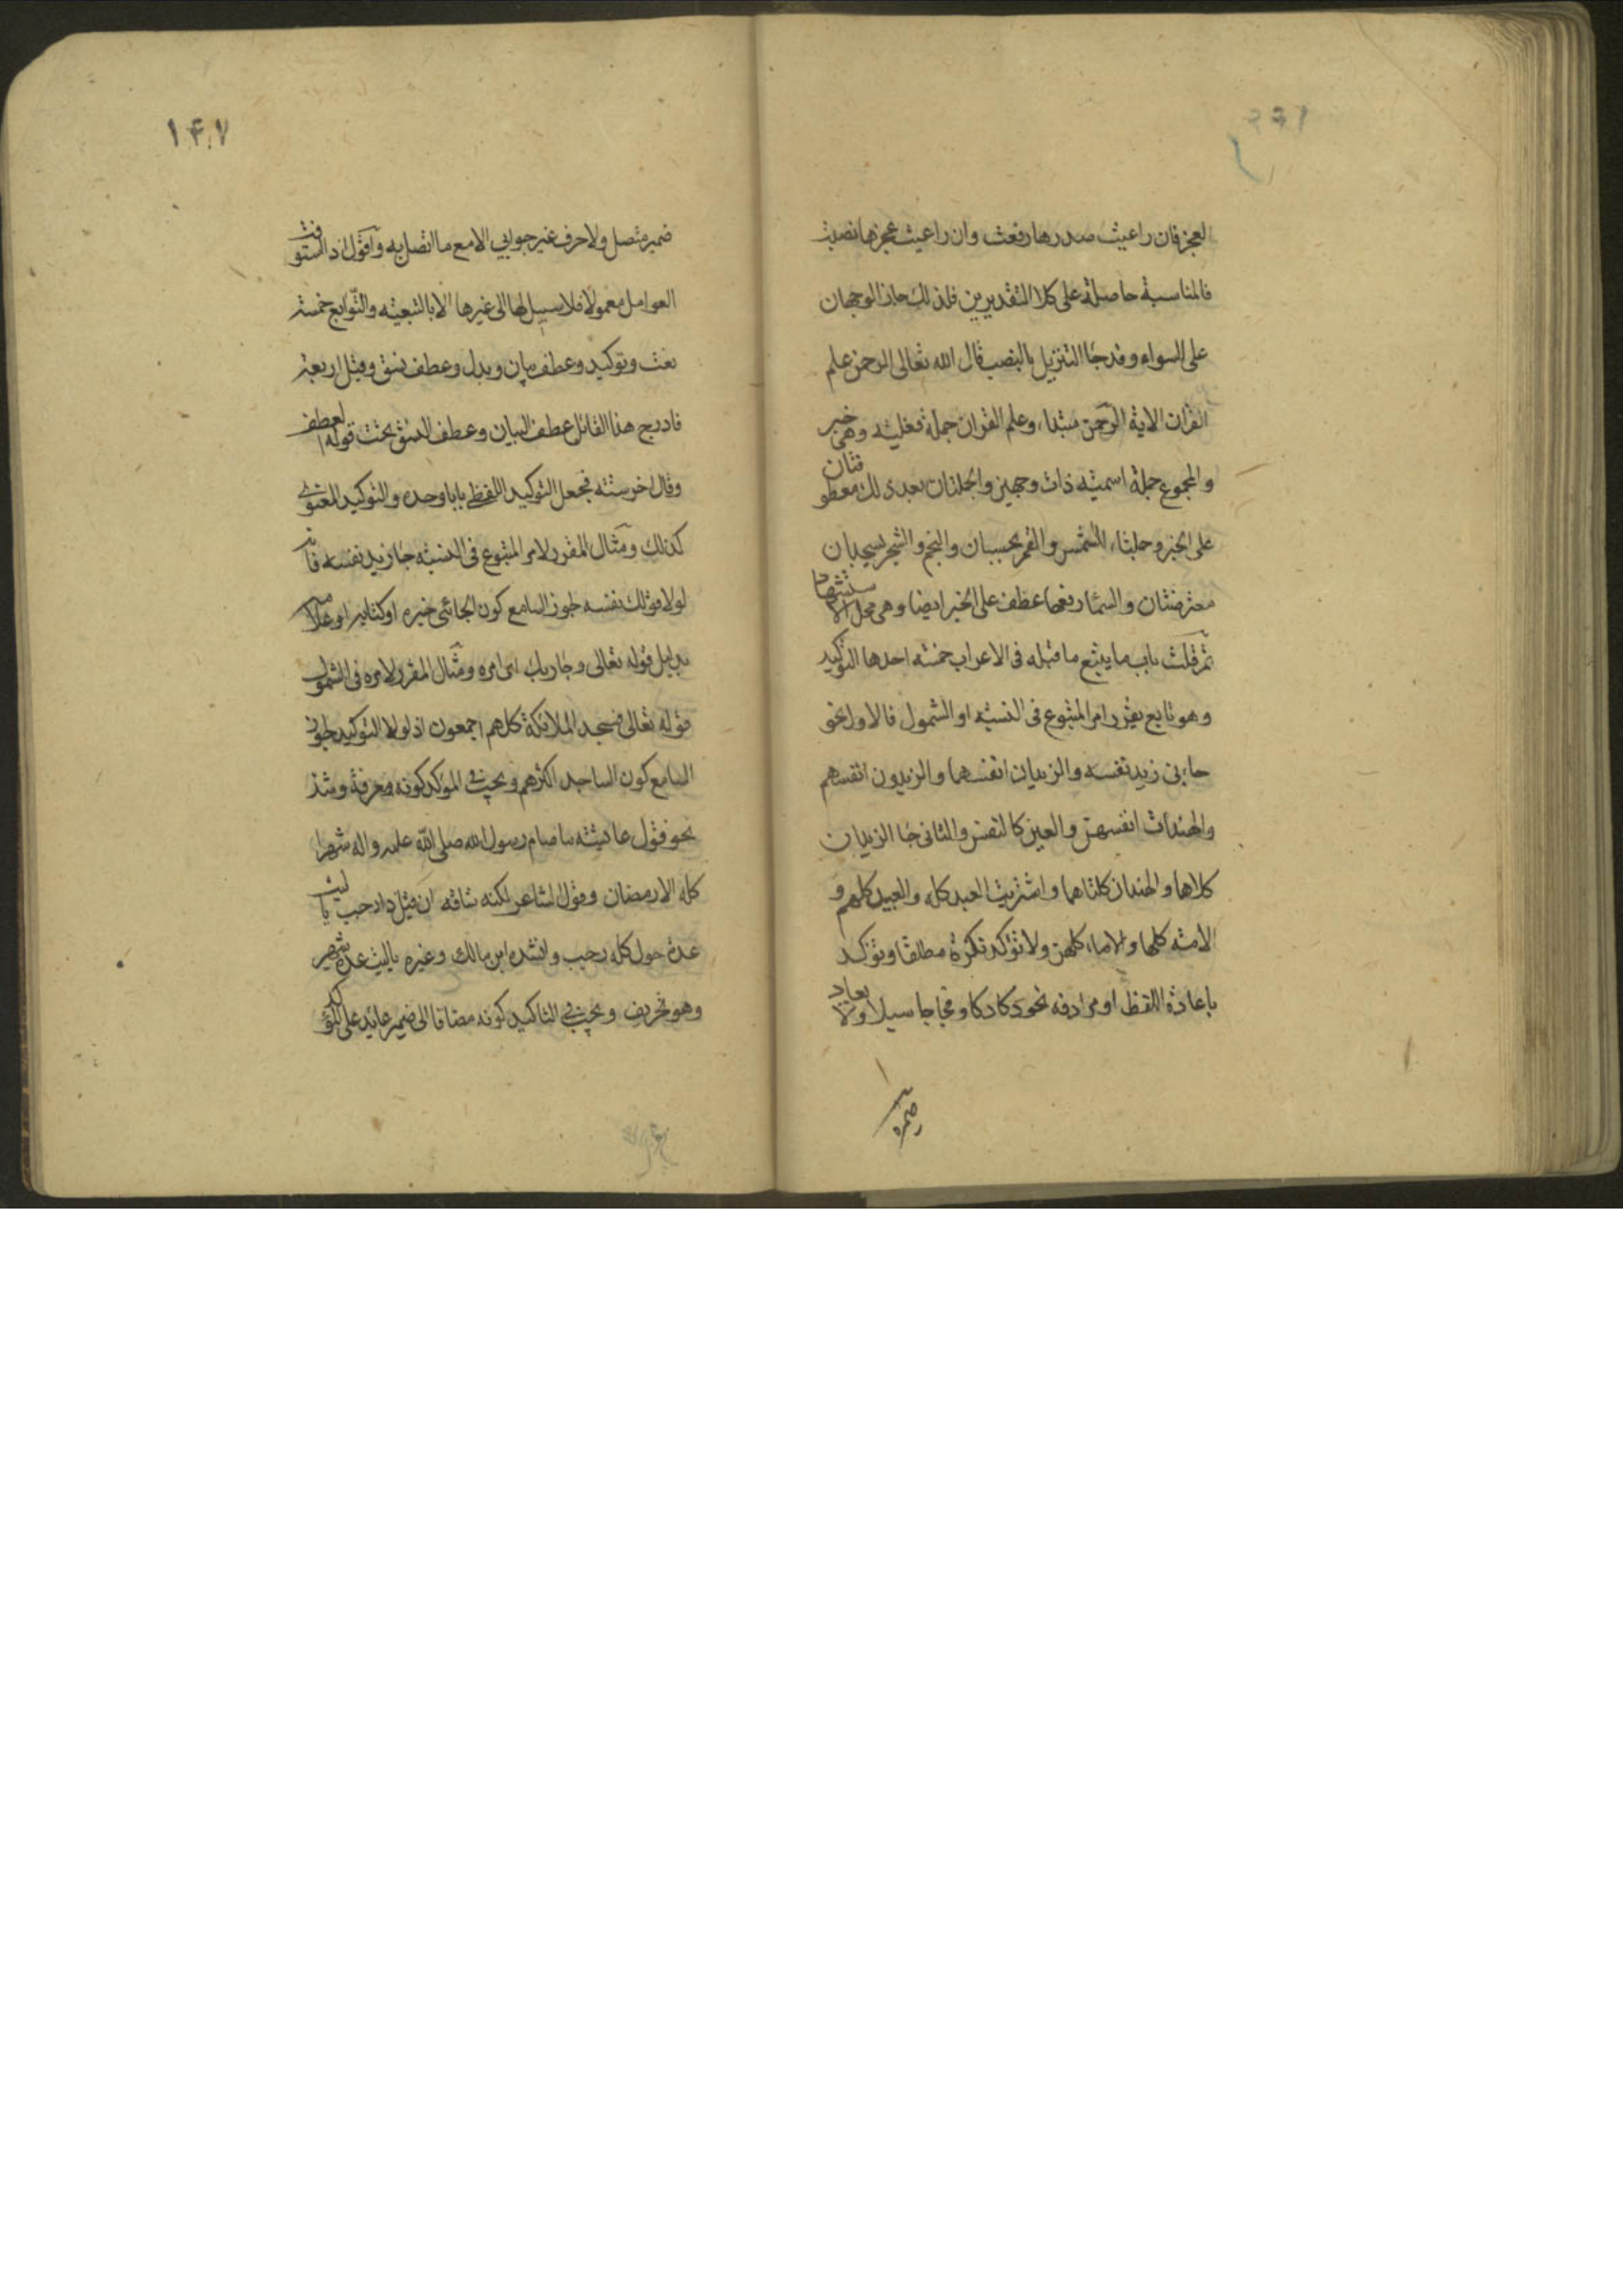 العجز فان راعیت صدرها رفعت وان راعیت عجزها نصبت
فالمناسبة حاصلة علی کلا التقدیرین فلذلک جاز الوجهان
علی السواء وقد جاء التنزیل بالنصب قال الله تعالی الرحمن علم
القرآن الایة الرحمن مبتداء وعلم القران جملة فعلیة وهی خبر
والمجموع جملة اسمیة ذات وجهین والجملتان بعد ذلک معطوفتان
علی الخبر وجملتاء الشمس والقمر بحسبان والنجم والشجر یسجدان
معترضتان والسماء رفعها عطف علی الخبر ایضا وهی محل الاستشهاد
ثم قلت باب ما یتبع ما قبله فی الاعراب خمسة احدها التوکید
وهو تابع یقرر امر المتبوع فی النسبة او الشمول فالاول نحو
جاءنی زید نفسه والزیدان انفسهما والزیدون انفسهم
والهندات انفسهن والعین کالنفس والثانی جاء الزیدان
کلاهما والهندان کلتاهما واشتریت العبد کله والعبید کلهم و
الامة کلها والاماء کلهن ولا تؤکد نکرة مطلقا وتؤکد
باعادة اللفظ او مرادفه نحو دکا دکا وفجاجا سبلا ولا یعاد
ضمیر
۱۴۷
ضمیر متصل ولا حرف غیر جوابی الا مع ما اتصل به واقول اذا استوفت
العوامل معمولا فلا سبیل لها الی غیرها الا بالتبعیة والتوابع خمسة
نعت وتوکید وعطف بیان وبدل وعطف نسق وقیل اربعة
فادرج هذا القائل عطف البیان وعطف النسق تحت قوله العطف
وقال اخر ستة فجعل التوکید اللفظی بابا وحده والتوکید المعنوی
کذلک ومثال المقرر لامر المتبوع فی النسبة جاء زید نفسه فانه
لولا قولک نفسه لجوز السامع کون الجائی خبره او کتابه او غلامه
بدلیل قوله تعالی وجاء ربک ای امره ومثال المقرر لامره فی الشمول
قوله تعالی فسجد الملائکة کلهم اجمعون اذ لولا التوکید لجوز
السامع کون الساجد اکثرهم ویجب فی المؤکد کونه معرفة وشذ
نحو قول عائشة ما صام رسول الله صلی الله علیه واله شهرا
کله الا رمضان وقول الشاعر لکنه شاقه ان قیل ذا رجب یا لیت
عدة حول کله رجب وانشده ابن مالک وغیره یا لیت عدة شهر
وهو تحریف ویجب فی التاکید کونه مضافا الی ضمیر عاید علی المؤکد